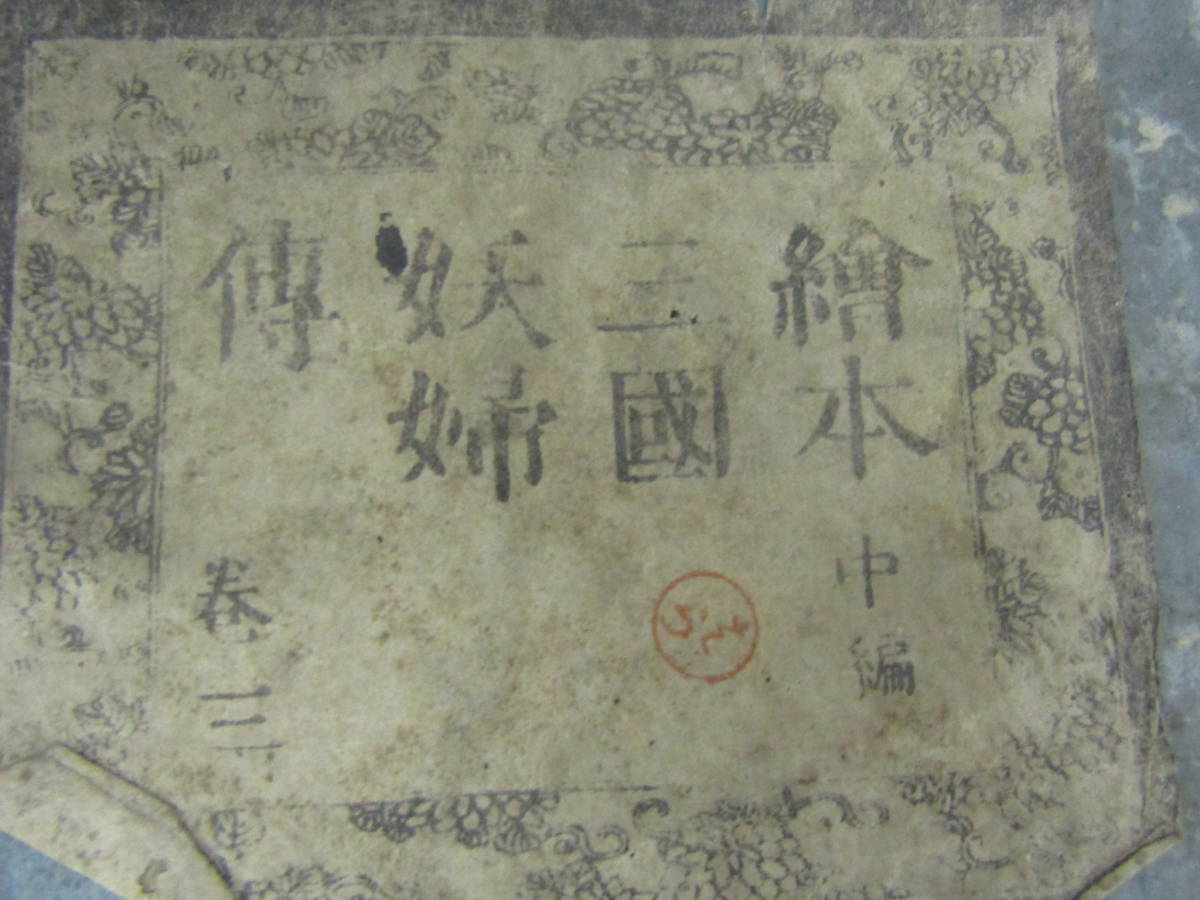 繪本中編
三國
妖婦
傳卷三